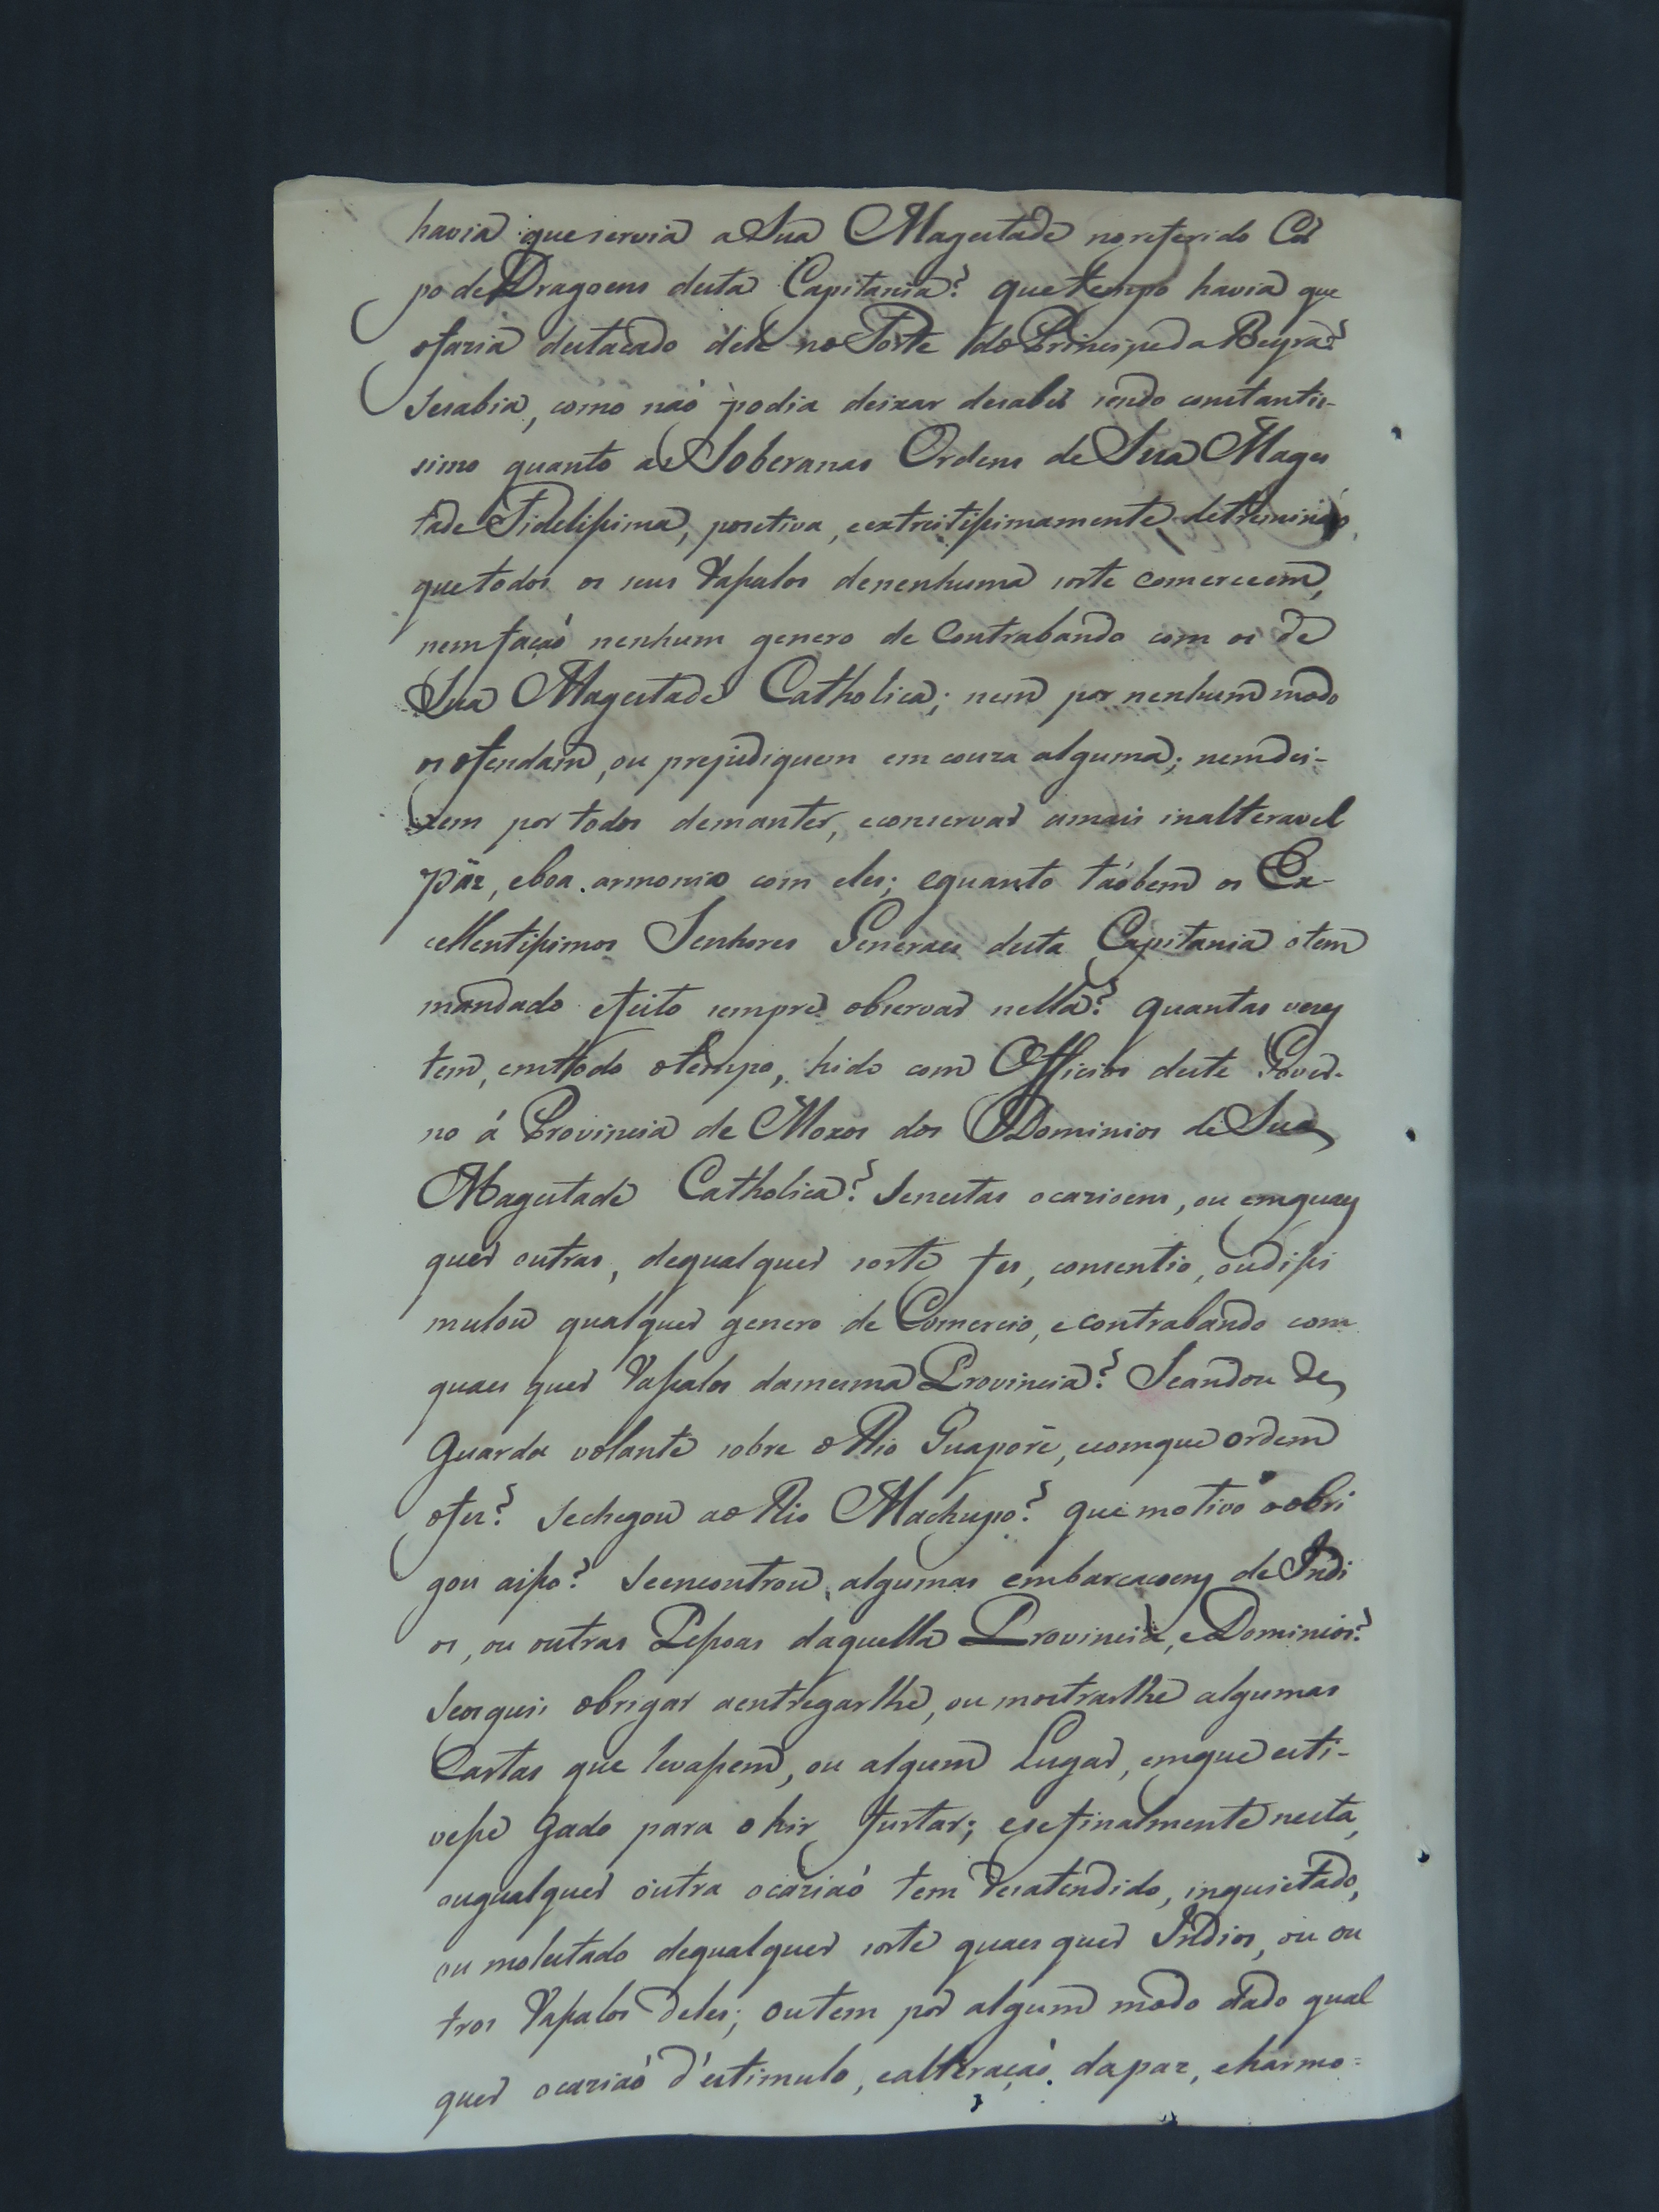 havia que servia a Sua Magestade no referido Cor
po de Dragoens desta Capitania? que tempo havia que
o fazia destacado déle no Forte do Principe da Beyra?
Se sabia, como naõ podia deixar de saber sendo constantis-
simo quanto as Soberanas Ordens de Sua Mages
tade Fidelissima, pozetiva, e extreitissimamente detreminaõ,
que todos os seus Vassalos de nenhuma sorte comerceem,
nem façaõ nenhum genero de Contrabando com os de
Sua Magestade Catholica; nem por nenhum modo
os ofendam, ou prejudiquem em couza alguma; nem dei-
xem por todos de manter, e conservar a mais inalteravel
páz, e boa armonia com eles; e quanto taõbem os Ex-
cellentissimos Senhores Generaes desta Capitania o tem
mandado e feito sempre observar nella? quantas vezes
tem, em todo o tempo, hido com Officios deste Gover-
no á Provincia de Moxos dos Dominios de Sua
Magestade Catholica? Se nestas ocazioens, ou em quaes
quer outras, de qualquer sorte fes, consentio, ou dissi
mulou qualquer genero de Comercio, e contrabando com
quaes quer Vassalos da mesma Provincia? Se andou de
Guarda volante sobre o Rio Guaporé, e com que ordem
o fez? Se chegou ao Rio Machupo? que motivo o obri
gou aisso? Se encontrou algumas embarcacoens de Indi
os, ou outras Pessoas daquella Provincia, e Dominios?
Se os quis obrigar a entregarlhe, ou mostrarlhe algumas
Cartas que levassem, ou algum Lugar, em que esti-
vesse Gado para o hir furtar; e se finalmente nesta,
ou qualquer outra ocaziaõ tem desatendido, inquietado,
ou molestado de qualquer sorte quaes quer Indios, ou ou
tros Vassalos deles; ou tem por algum modo dado qual
quer ocaziaõ d'estimulo, e alteraçaõ da paz, e harmo=